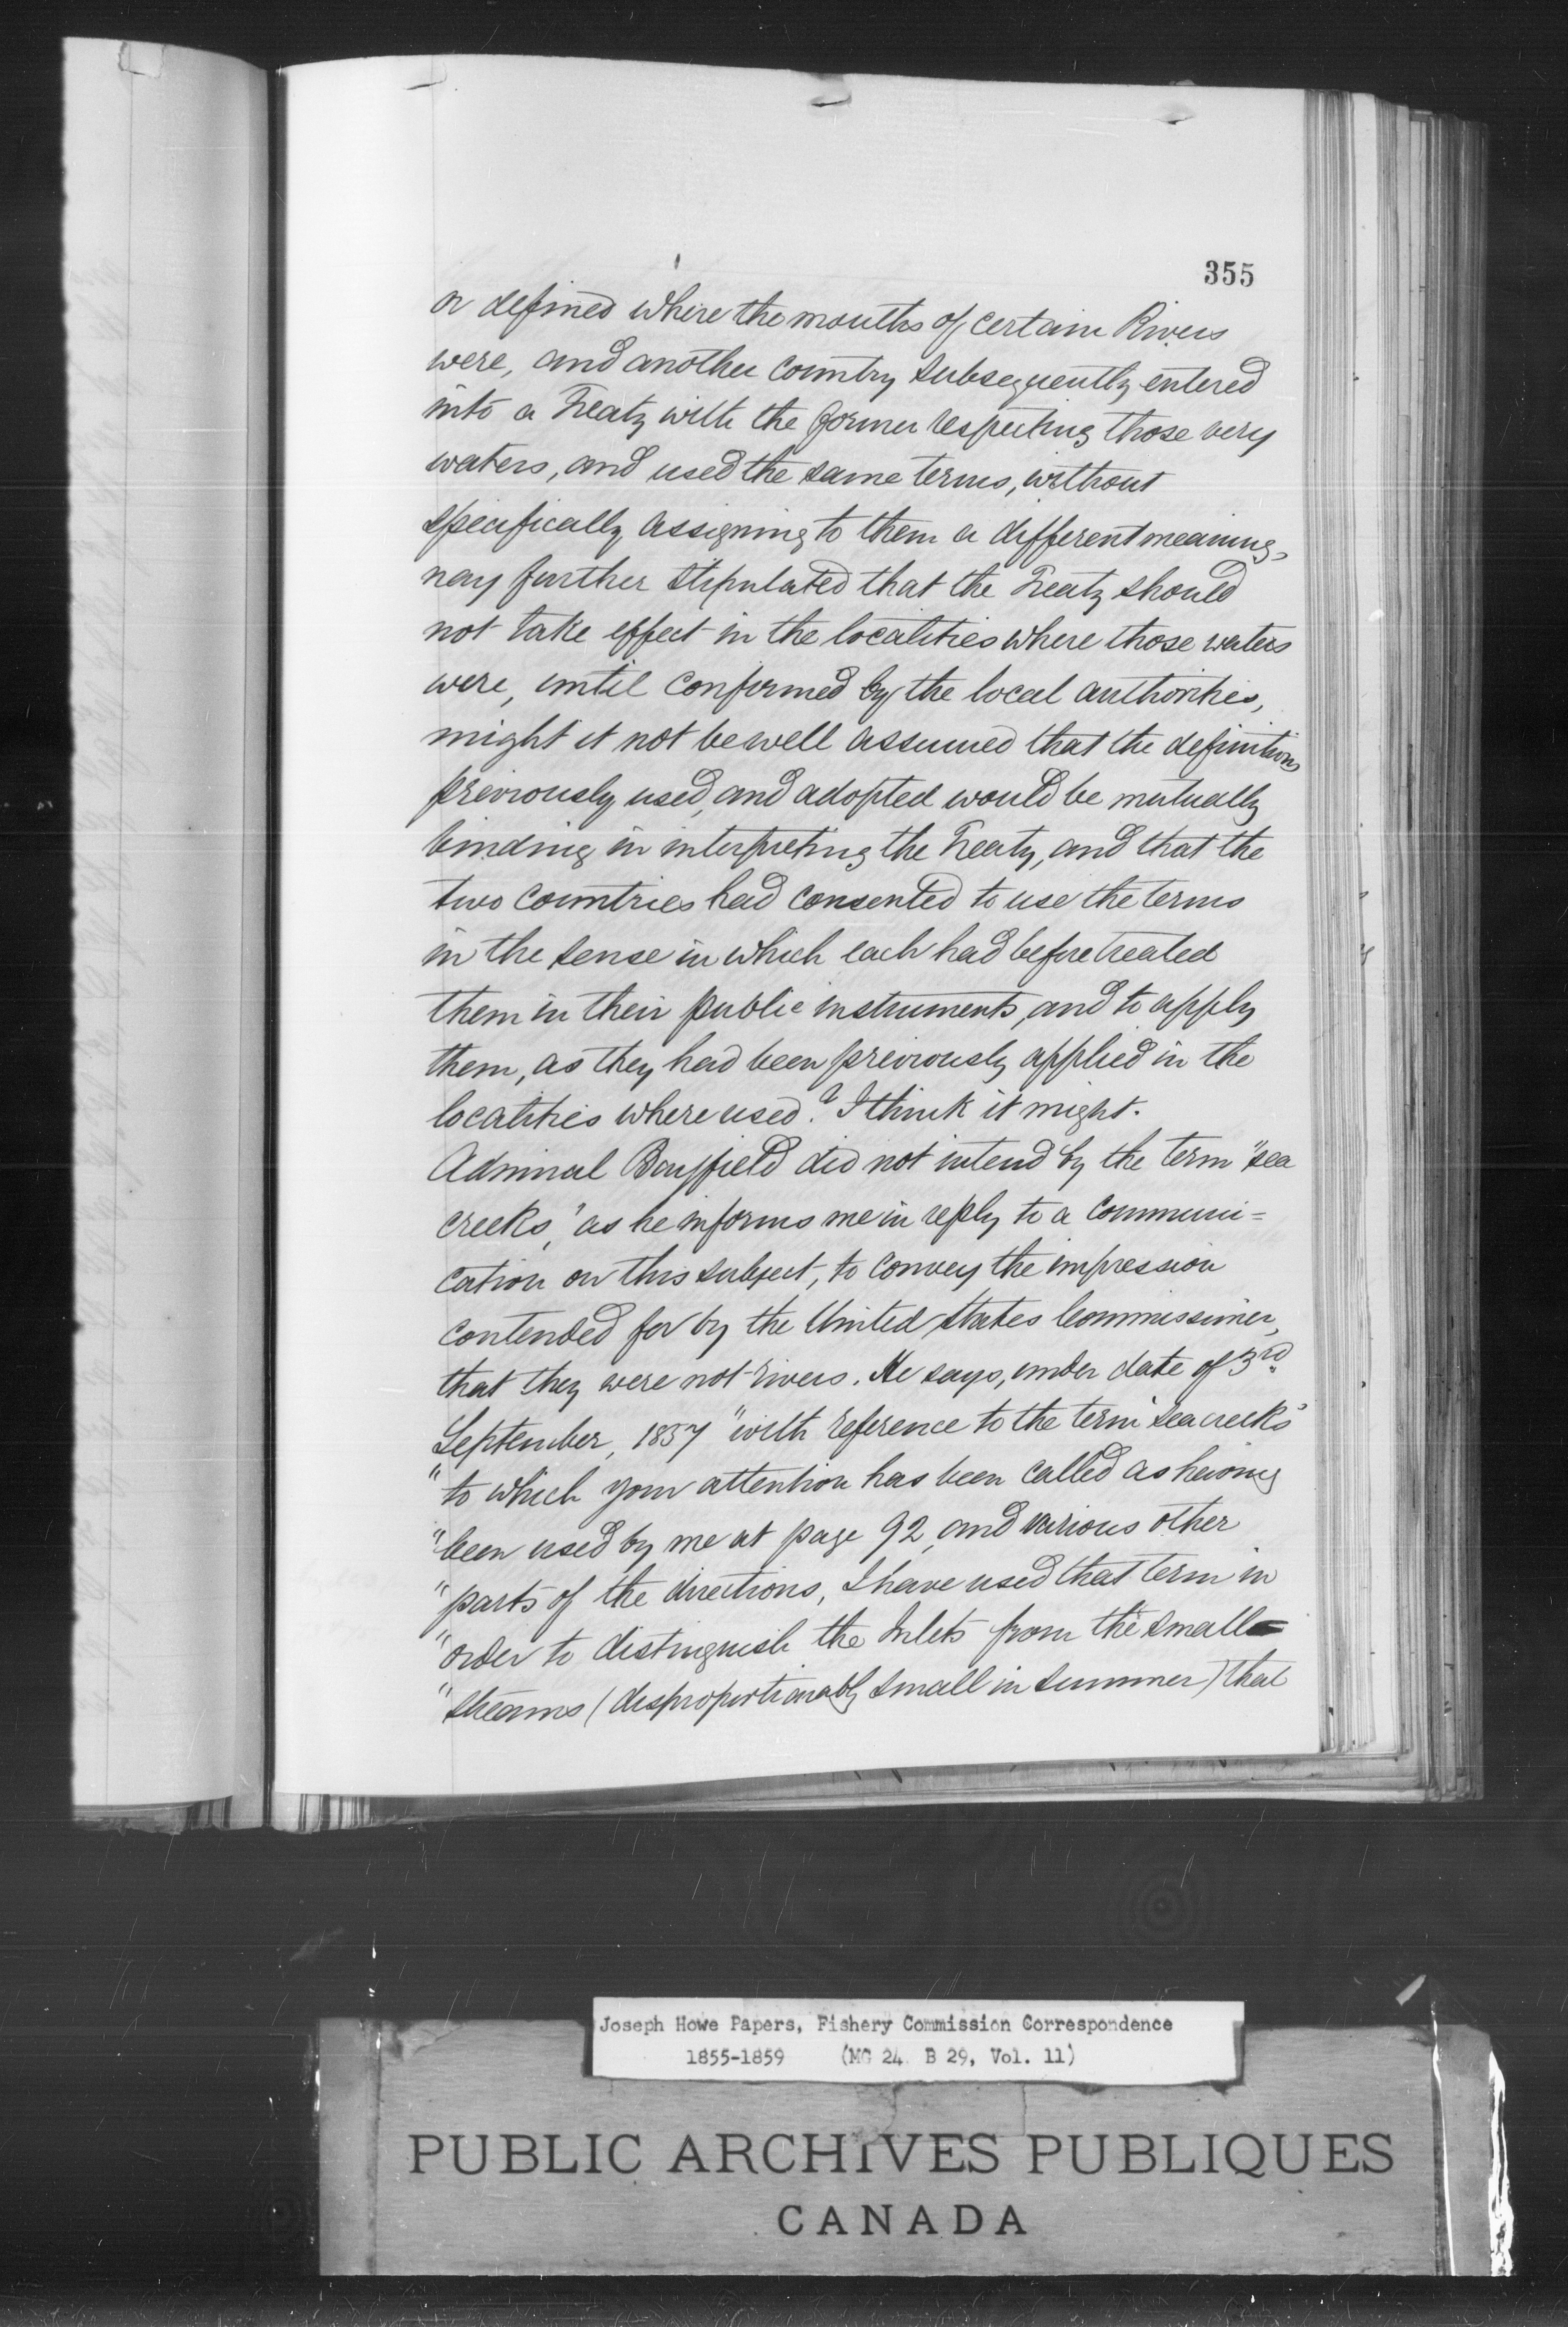 355
or defined where the mouths of certain Rivers
were, and another country subsequently entered
into a Treaty with the former respecting those very
waters, and used the same terms, without
specifically assigning to them a different meaning,
nay further stipulated that the Treaty should
not take effect in the localities where those waters
were, until confirmed by the local authorities,
might it not be well assumed that the definitions
previously used, and adopted would be mutually
binding in interpreting the Treaty, and that the
two countries had consented to use the terms
in the sense in which each had before treated
them in their public instruments, and to apply
them, as they had been previously applied in the
localities where used? I think it might.
Admiral Bayfield did not intend by the term "sea
creeks," as he informs me in reply to a communi=
cation on this subject, to convey the impression
contended for by the United States Commissioner,
that they were not rivers. He says, under date of 3rd
September, 1857 "with reference to the term 'sea creeks'
"to which your attention has been called as having
"been used by me at page 92, and various other
"parts of the directions, I have used that term in
"order to distinguish the Inlets from the small
"streams (disproportionably small in summer) that
Joseph Howe Papers, Fishery Commission Correspondence
1855-1859 (MG 24 B 29, Vol. 11)
PUBLIC ARCHIVES PUBLIQUES
CANADA